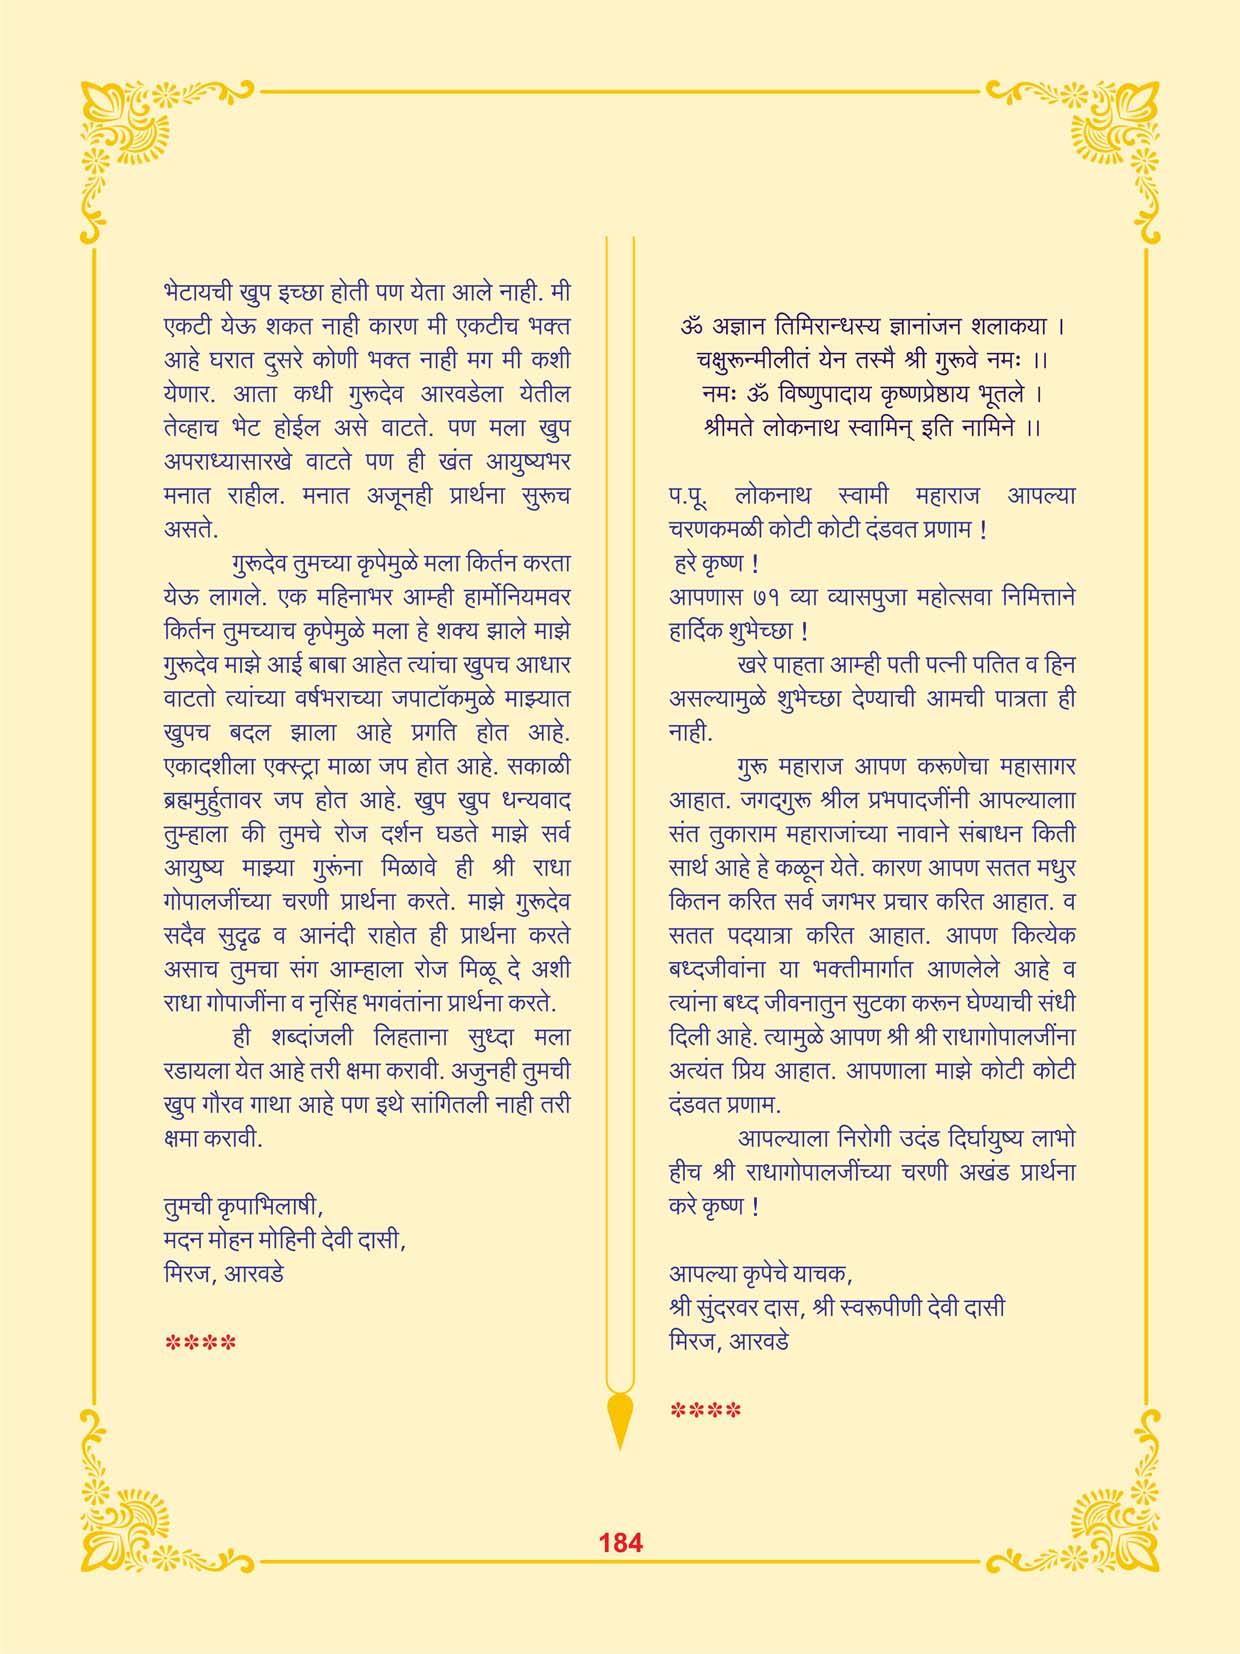 भेटायची खुप इच्छा होती पण येता आले नाही. मी
एकटी येऊ शकत नाही कारण मी एकटीच भक्त
आहे घरात दुसरे कोणी भक्त नाही मग मी कशी
येणार. आता कधी गुरूदेव आरवडेला येतील
तेव्हाच भेट होईल असे वाटते. पण मला खुप
अपराध्यासारखे वाटते पण ही खंत आयुष्यभर
मनात राहील. मनात अजूनही प्रार्थना सुरूच
असते.
गुरूदेव तुमच्या कृपेमुळे मला किर्तन करता
येऊ लागले. एक महिनाभर आम्ही हार्मोनियमवर
किर्तन तुमच्याच कृपेमुळे मला हे शक्य झाले माझे
गुरूदेव माझे आई बाबा आहेत त्यांचा खुपच आधार
वाटतो त्यांच्या वर्षभराच्या जपाटॉकमुळे माझ्यात
खुपच बदल झाला आहे प्रगति होत आहे.
एकादशीला एक्स्ट्रा माळा जप होत आहे. सकाळी
ब्रह्ममुर्हुतावर जप होत आहे. खुप खुप धन्यवाद
तुम्हाला की तुमचे रोज दर्शन घडते माझे सर्व
आयुष्य माझ्या गुरूंना मिळावे ही श्री राधा
गोपालजींच्या चरणी प्रार्थना करते. माझे गुरूदेव
सदैव सुदृढ व आनंदी राहोत ही प्रार्थना करते
असाच तुमचा संग आम्हाला रोज मिळू दे अशी
राधा गोपाजींना व नृसिंह भगवंतांना प्रार्थना करते.
ही शब्दांजली लिहताना सुध्दा मला
रडायला येत आहे तरी क्षमा करावी. अजुनही तुमची
खुप गौरव गाथा आहे पण इथे सांगितली नाही तरी
क्षमा करावी.
तुमची कृपाभिलाषी,
मदन मोहन मोहिनी देवी दासी,
मिरज, आरवडे
****
ॐ अज्ञान तिमिरान्धस्य ज्ञानांजन शलाकया ।
चक्षुरून्मीलीतं येन तस्मै श्री गुरूवे नमः ।।
नमः ॐ विष्णुपादाय कृष्णप्रेष्ठाय भूतले ।
श्रीमते लोकनाथ स्वामिन् इति नामिने ।।
प.पू. लोकनाथ स्वामी महाराज आपल्या
चरणकमळी कोटी कोटी दंडवत प्रणाम !
हरे कृष्ण !
आपणास ७१ व्या व्यासपुजा महोत्सवा निमित्ताने
हार्दिक शुभेच्छा !
खरे पाहता आम्ही पती पत्नी पतित व हिन
असल्यामुळे शुभेच्छा देण्याची आमची पात्रता ही
नाही.
गुरू महाराज आपण करूणेचा महासागर
आहात. जगद्गुरू श्रील प्रभपादजींनी आपल्यालाा
संत तुकाराम महाराजांच्या नावाने संबाधन किती
सार्थ आहे हे कळून येते. कारण आपण सतत मधुर
कितन करित सर्व जगभर प्रचार करित आहात. व
सतत पदयात्रा करित आहात. आपण कित्येक
बध्दजीवांना या भक्तीमार्गात आणलेले आहे व
त्यांना बध्द जीवनातुन सुटका करून घेण्याची संधी
दिली आहे. त्यामुळे आपण श्री श्री राधागोपालजींना
अत्यंत प्रिय आहात. आपणाला माझे कोटी कोटी
दंडवत प्रणाम.
आपल्याला निरोगी उदंड दिर्घायुष्य लाभो
हीच श्री राधागोपालजींच्या चरणी अखंड प्रार्थना
करे कृष्ण !
आपल्या कृपेचे याचक,
श्री सुंदरवर दास, श्री स्वरूपीणी देवी दासी
मिरज, आरवडे
****
184